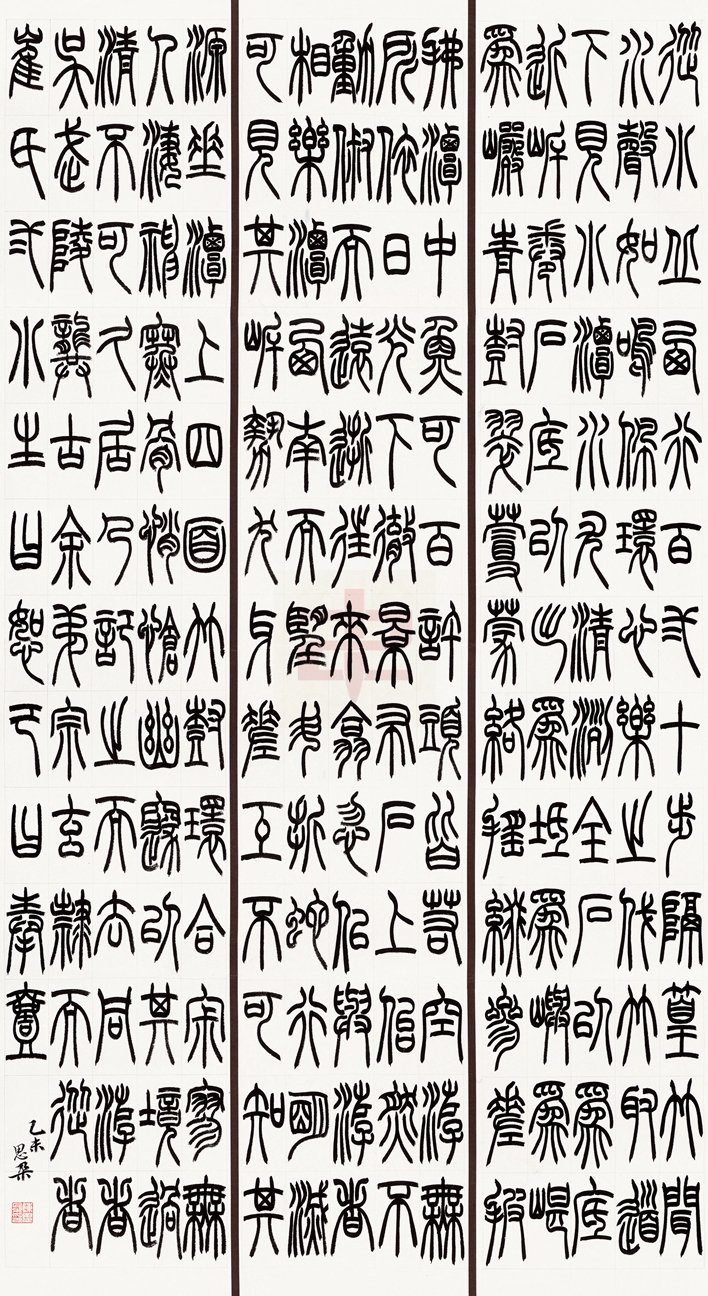 從小丘西行百弍十步隔篁竹聞
水聲如鳴佩環心樂之伐竹取道
下見小潭水尤清冽全石以爲底
近岸卷石底以出爲坻爲嶼爲嵁
爲巖青樹翠蔓蒙絡搖綴參差披
拂潭中魚可百許頭皆若空游無
所依日光下徹影布石上佁然不
動俶而遠逝往來翕忽似與游者
相樂潭西南而望斗折蛇行明滅
可見其岸勢犬牙差互不可知其
源坐潭上四面竹樹環合寂寥無
人淒神寒骨悄愴幽邃以其境過
清不可久居乃記之而去同游者
吳武陵龔古余弟宗玄隸而從者
崔氏弍小生曰恕己曰奉壹
乙未